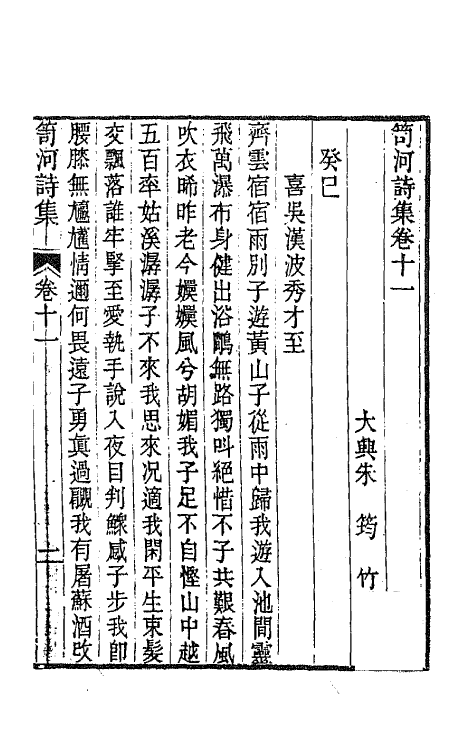 笥河詩集卷十一
大興朱 筠 竹
癸巳
喜吳漢波秀才至
齊雲宿宿雨別子遊黃山子從雨中歸我遊入池間靈
飛萬瀑布身健出浴鷳無路獨叫絕惜不子共艱春風
吹衣晞昨老今嬽嬽風兮胡媚我子足不自慳山中越
五百率姑溪潺潺子不來我思來况適我閑平生束髮
交飄落誰牢掔至愛執手說入夜目判鰥感子步我卽
腰膝無尷尬情邇何畏遠子勇眞過瞯我有屠蘇酒改
笥河詩集 卷十一 一